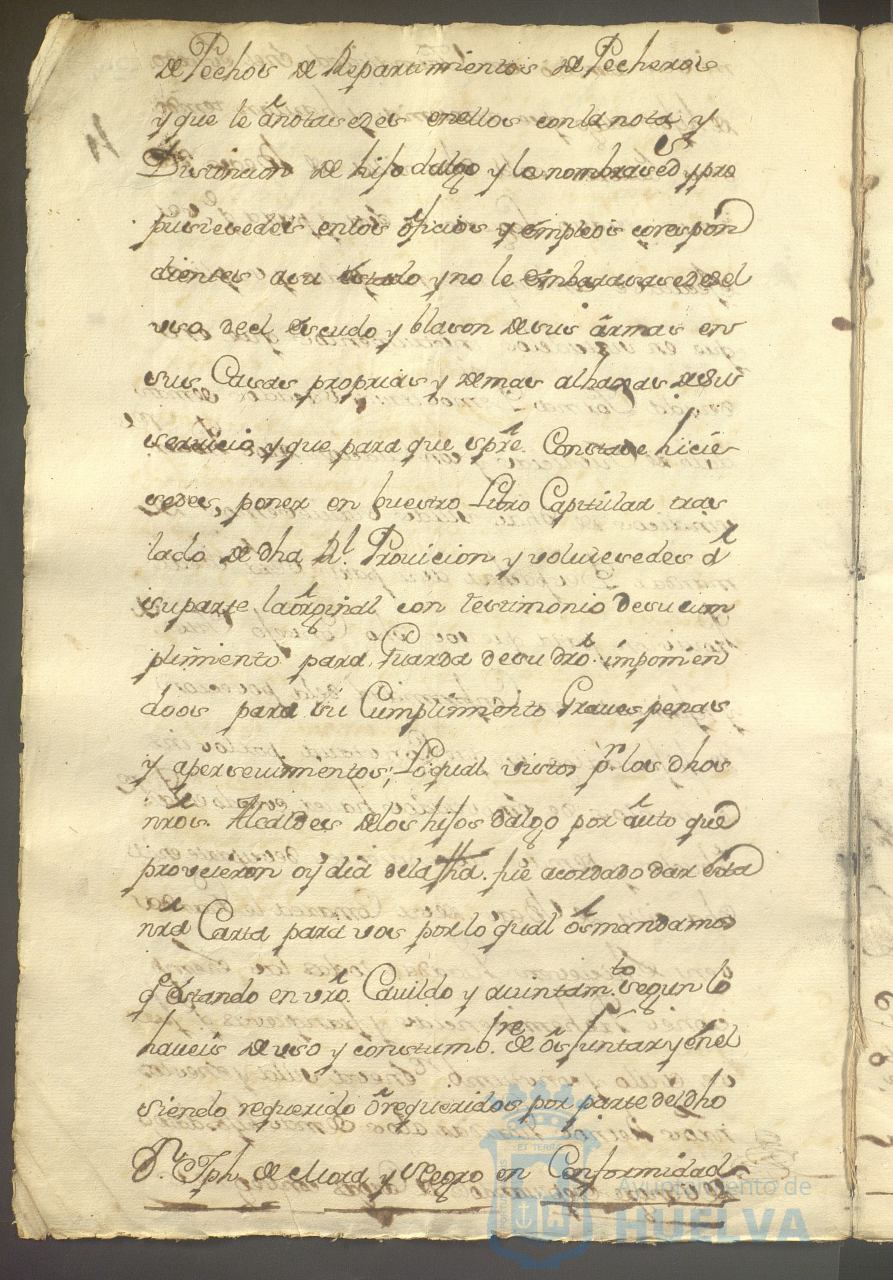 de Pechos de Repartimientos de Pecheros
y que le anotasedes en ellos con la nota y
Distincion de hijo dalgo y lo nombrased.s y pro
pusiesedes en los oficios y empleos corespon
dientes a su estado y no le embarasasedes el
uso de el escudo y blason de sus ãrmas en
sus Casas proprias y demas alhajas de su
servicio y que para que spre. Constase hicie
sedes, poner en buestro Libro Capitular tras
lado de dha Rl. Provicion y volviesedes â
su parte la original con testimonio de su cum
plimiento para Guarda de su dro. imponien
doos para su Cumplimiento Graves penas
y apersevimientos; Lo qual visto pr. los dhos
nros. Alcaldes de los hijos dalgo por auto que
proveieron oy dia de la fha. fue acordado dar esta
nra Carta para vos por lo qual os mandamos
qe estando en vro. Cavildo y aiuntamto. segun lo
haveis de uso y constumbre. de os juntar y en el
siendo requerido ô requeridos por parte del dho
Dn. Jph. de Mora y Negro en Conformidad
EX TERRAE
Ayuntamiento de
HUELVA